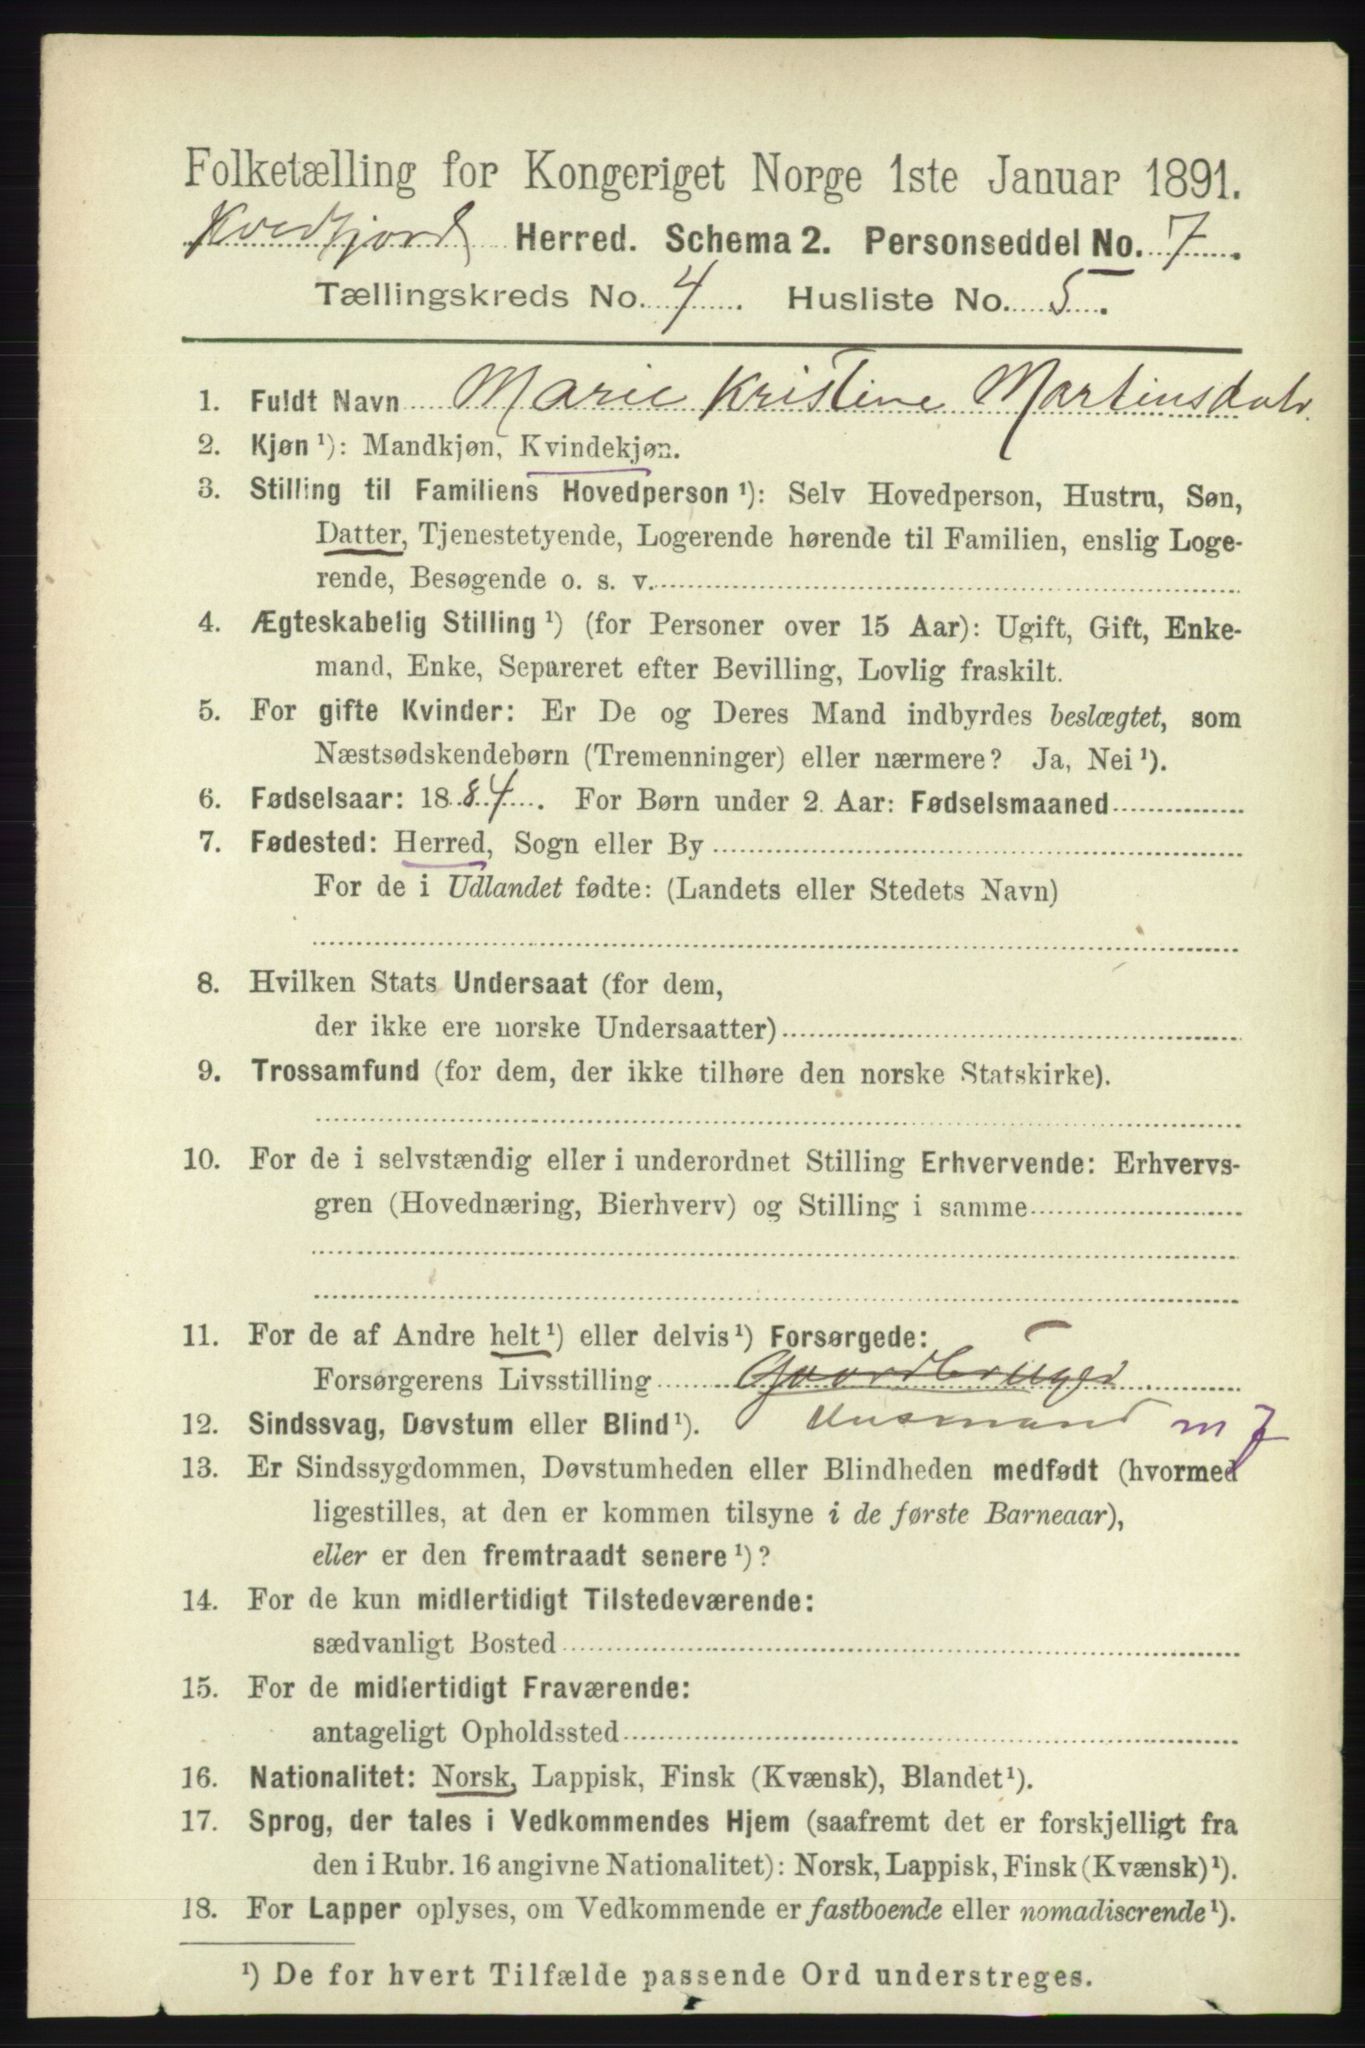 Folketælling for Kongeriget Norge 1ste Januar 1891.
Kvedfjord Herred. Schema 2. Personseddel No. 7.
Tællingskreds No. 4. Husliste No. 5.
1. Fuldt Navn Marie Kristine Martinsdatr.
2. Kjøn ¹): Mandkjøn, Kvindekjøn.
3. Stilling til Familiens Hovedperson ¹): Selv Hovedperson, Hustru, Søn,
Datter, Tjenestetyende, Logerende hørende til Familien, enslig Loge-
rende, Besøgende o. s. v.
4. Ægteskabelig Stilling ¹) (for Personer over 15 Aar): Ugift, Gift, Enke-
mand, Enke, Separeret efter Bevilling, Lovlig fraskilt.
5. For gifte Kvinder: Er De og Deres Mand indbyrdes beslægtet, som
Næstsødskendebørn (Tremenninger) eller nærmere? Ja, Nei ¹).
6. Fødselsaar: 1884. For Børn under 2 Aar: Fødselsmaaned
7. Fødested: Herred, Sogn eller By
For de i Udlandet fødte: (Landets eller Stedets Navn)
8. Hvilken Stats Undersaat (for dem,
der ikke ere norske Undersaatter)
9. Trossamfund (for dem, der ikke tilhøre den norske Statskirke).
10. For de i selvstændig eller i underordnet Stilling Erhvervende: Erhvervs-
gren (Hovednæring, Bierhverv) og Stilling i samme
11. For de af Andre helt ¹) eller delvis ¹) Forsørgede:
Forsørgerens Livsstilling Gaardbruger
12. Sindssvag, Døvstum eller Blind ¹). Husmand m J
13. Er Sindssygdommen, Døvstumheden eller Blindheden medfødt (hvormed
ligestilles, at den er kommen tilsyne i de første Barneaar),
eller er den fremtraadt senere ¹)?
14. For de kun midlertidigt Tilstedeværende:
sædvanligt Bosted
15. For de midlertidigt Fraværende:
antageligt Opholdssted
16. Nationalitet: Norsk, Lappisk, Finsk (Kvænsk), Blandet ¹).
17. Sprog, der tales i Vedkommendes Hjem (saafremt det er forskjelligt fra
den i Rubr. 16 angivne Nationalitet): Norsk, Lappisk, Finsk (Kvænsk) ¹).
18. For Lapper oplyses, om Vedkommende er fastboende eller nomadiserende ¹).
¹) De for hvert Tilfælde passende Ord understreges.